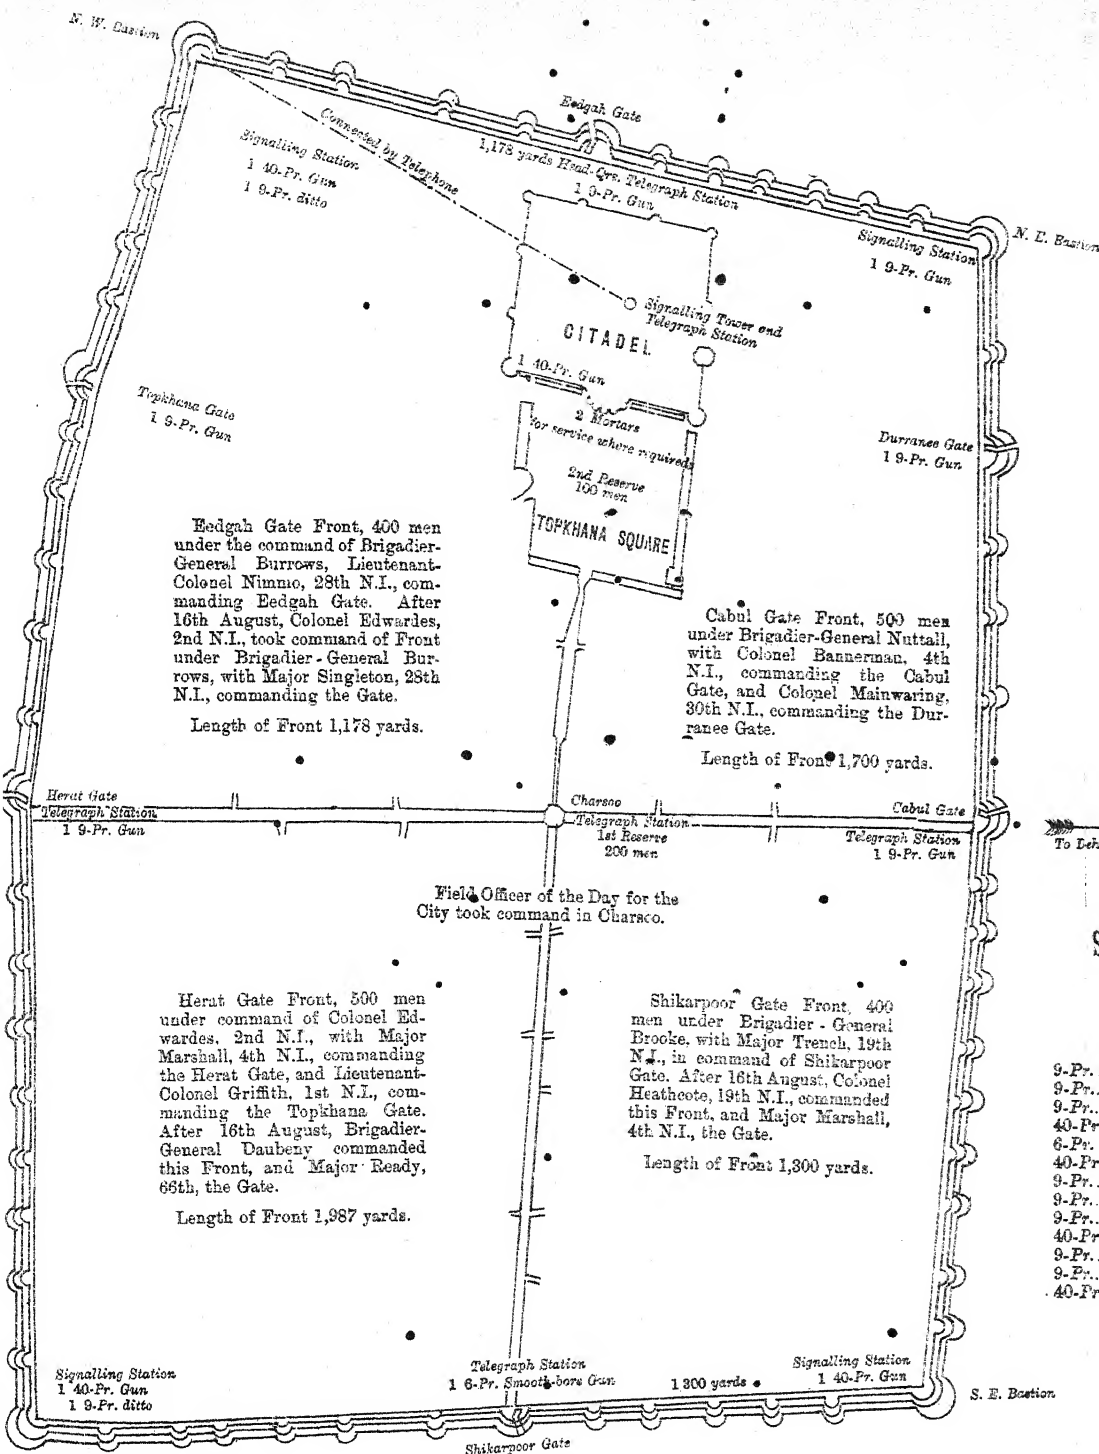 N. W. Bastion
Eedgah Gate
Connected by Telephone
1,178 yards Head-Qrs. Telegraph Station
1 9-Pr. Gun
Signalling Station
1 40-Pr. Gun
1 9-Pr. ditto
N. E. Bastion
Signalling Station
1 9-Pr. Gun
Signalling Tower and
Telegraph Station
CITADEL
1 40-Pr. Gun
2 Mortars
for service where required
2nd Reserve
100 men
TOPKHANA SQUARE
Topkhana Gate
1 9-Pr. Gun
Durranee Gate
1 9-Pr. Gun
Eedgah Gate Front, 400 men
under the command of Brigadier-
General Burrows, Lieutenant-
Colonel Nimmo, 28th N.I., com-
manding Eedgah Gate. After
16th August, Colonel Edwardes,
2nd N.I., took command of Front
under Brigadier-General Bur-
rows, with Major Singleton, 28th
N.I., commanding the Gate.
Length of Front 1,178 yards.
Cabul Gate Front, 500 men
under Brigadier-General Nuttall,
with Colonel Bannerman, 4th
N.I., commanding the Cabul
Gate, and Colonel Mainwaring,
30th N.I., commanding the Dur-
ranee Gate.
Length of Front 1,700 yards.
Herat Gate
Telegraph Station
1 9-Pr. Gun
Charsoo
Telegraph Station
1st Reserve
200 men
Cabul Gate
Telegraph Station
1 9-Pr. Gun
To Deh
Field Officer of the Day for the
City took command in Charsoo.
S
Herat Gate Front, 500 men
under command of Colonel Ed-
wardes, 2nd N.I., with Major
Marshall, 4th N.I., commanding
the Herat Gate, and Lieutenant-
Colonel Griffith, 1st N.I., com-
manding the Topkhana Gate.
After 16th August, Brigadier-
General Daubeny commanded
this Front, and Major Ready,
66th, the Gate.
Length of Front 1,987 yards.
Shikarpoor Gate Front, 400
men under Brigadier-General
Brooke, with Major Trench, 19th
N.I., in command of Shikarpoor
Gate. After 16th August, Colonel
Heathcote, 19th N.I., commanded
this Front, and Major Marshall,
4th N.I., the Gate.
Length of Front 1,300 yards.
9-Pr.
9-Pr..
9-Pr..
40-Pr
6-Pr.
40-Pr
9-Pr..
9-Pr..
9-Pr..
40-Pr
9-Pr..
9-Pr..
40-Pr
Signalling Station
1 40-Pr. Gun
1 9-Pr. ditto
Telegraph Station
1 6-Pr. Smooth-bore Gun
1300 yards
Signalling Station
1 40-Pr. Gun
S. E. Bastion
Shikarpoor Gate